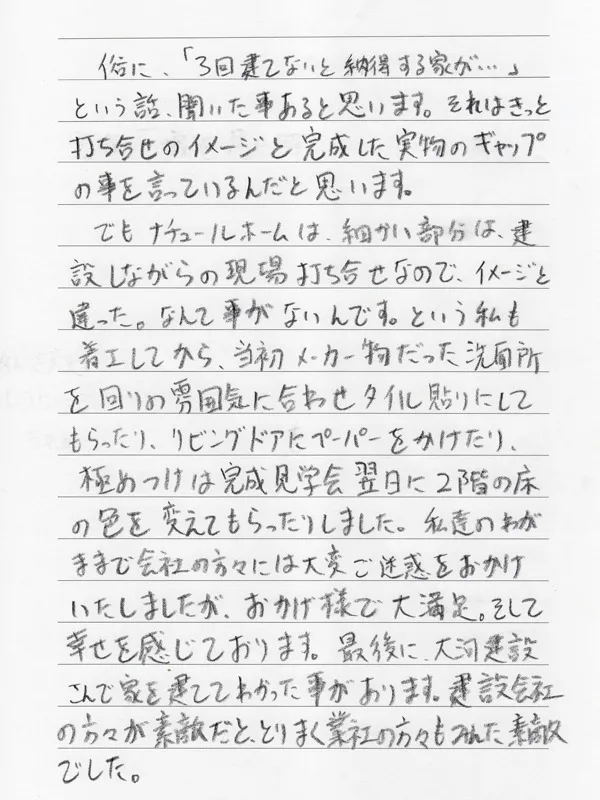 俗に、「3回建てないと納得する家が…」
という話、聞いた事あると思います。それはきっと
打ち合せのイメージと完成した実物のギャップ
の事を言っているんだと思います。
でもナチュールホームは、細かい部分は、建
設しながらの現場打ち合せなので、イメージと
違った。なんて事がないんです。という私も
着工してから、当初メーカー物だった洗面所
を回りの雰囲気に合わせタイル貼りにして
もらったり、リビングドアにペーパーをかけたり、
極めつけは完成見学会翌日に2階の床
の色を変えてもらったりしました。私達のわが
ままで会社の方々には大変ご迷惑をおかけ
いたしましたが、おかげ様で大満足。そして
幸せを感じております。最後に、大河建設
さんで家を建ててわかった事があります。建設会社
の方々が素敵だと、とりまく業社の方々もみんな素敵
でした。